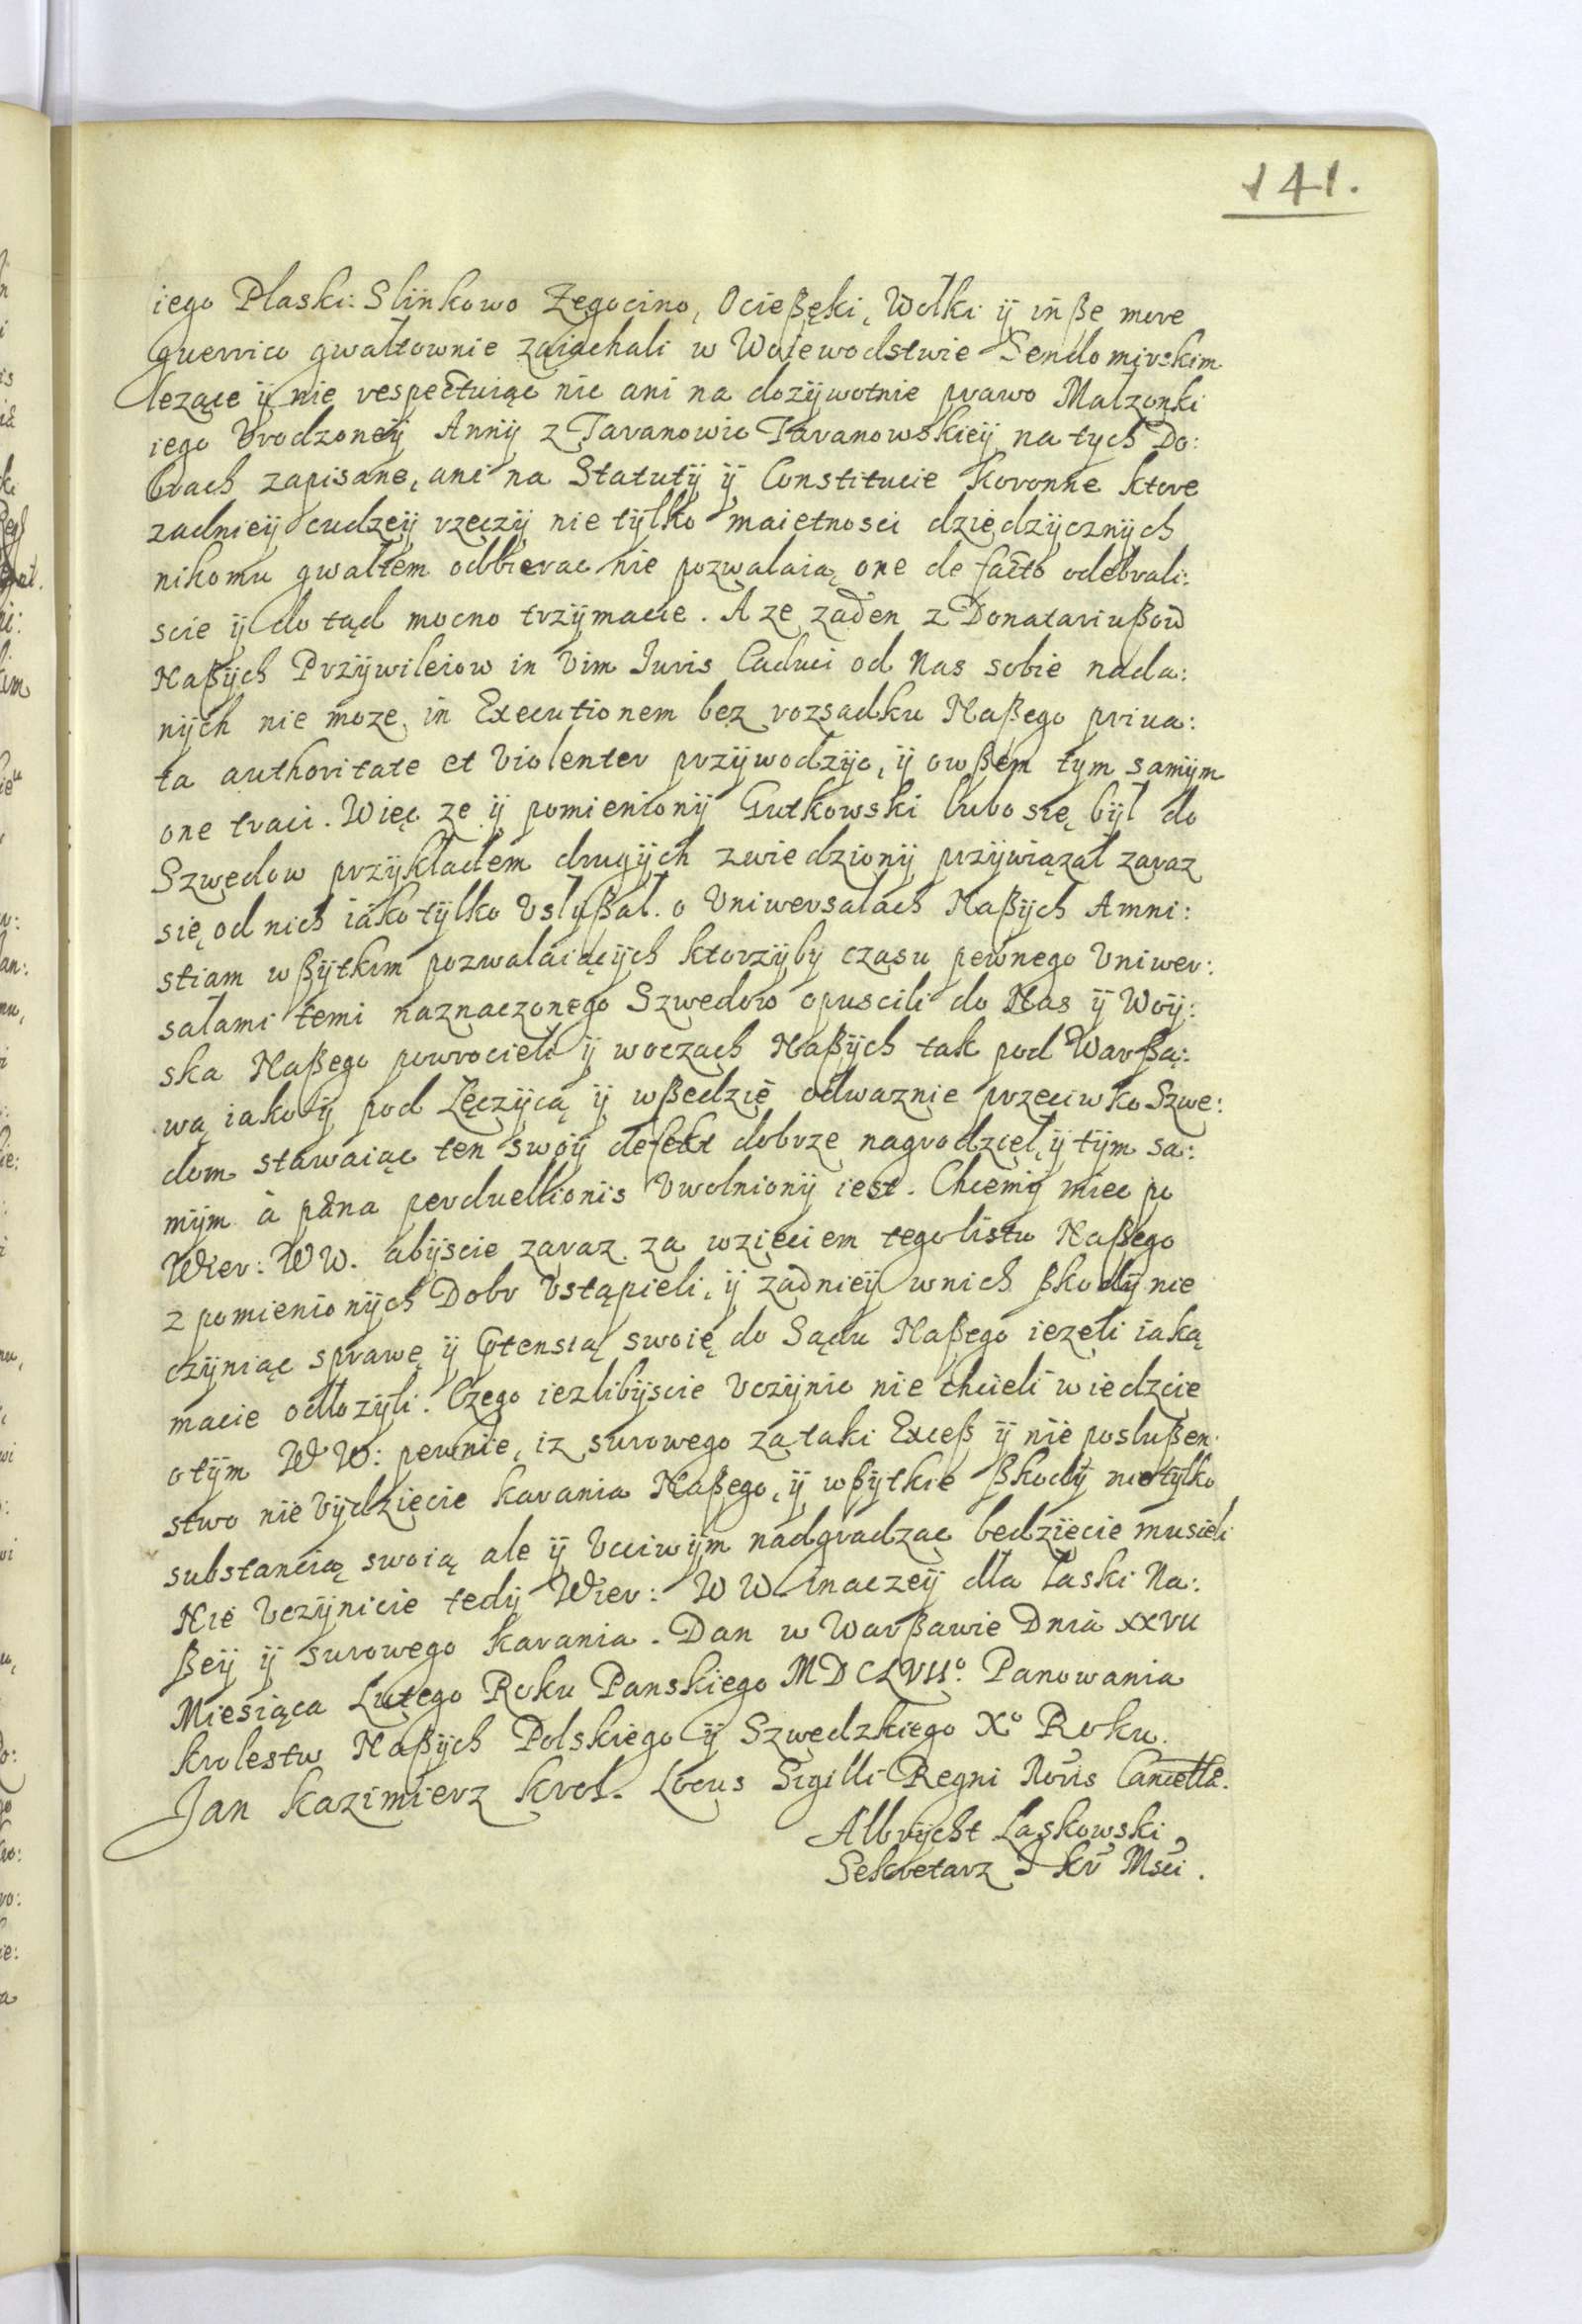 141.
iego Plaski: Slinkowo Zegocino, Ocießęki, Wolki ÿ inße more
guerrico gwałtownie zaiachali w Woiewodstwie Sendomirskim
lezące ÿ nie respectuiąc nic ani na dozÿwotnie prawo Malzonki
iego Vrodzoneÿ Annÿ z Taranowic Taranowskieÿ na tych Do:
brach zapisane, ani na Statutÿ ÿ Constitucie Koronne ktore
zadnieÿ cudzeÿ rzeczÿ nie tÿlko maietnosci dziedzÿcznÿch
nikomu gwałtem odbierac nie pozwalaią one de facto odebrali:
scie ÿ do tąd mocno trzÿmacie. A ze zaden z Donatariußow
Naßÿch Przÿwileiow in vim Iuris Caduci od Nas sobie nada:
nÿch nie moze in Executionem bez rozsadku Naßego priua:
ta authoritate et violenter przÿwodzÿc, ÿ owßem tym samÿm
one traci. Więc ze ÿ pomienionÿ Gutkowski lubo się bÿł do
Szwedow przÿkładem drugÿch zwiedzionÿ przÿwiązał zaraz
się od nich iako tÿlko Vslÿßał o Vniwersałach Naßÿch Amni:
stiam wßÿtkim pozwalaiąÿch ktorzÿby czasu pewnego Vniwer:
sałami temi naznaczonego Szwedow opuscili do Nas ÿ Woÿ:
ska Naßego powrocieli ÿ woczach Naßÿch tak pod Warßa:
wą iako ÿ pod Łęczÿcą ÿ wßedzie odwaznie przeciwko Szwe:
dom stawaiąc ten swoÿ defekt dobrze nagrodzieł, ÿ tÿm sa:
mÿm à pæna perduellionis Vwolnionÿ iest. Chcemÿ miec po
Wier: WW. abÿscie zaraz za wzięciem tego listu Naßego
z pomienionÿch Dobr Vstąpieli, ÿ zadnieÿ wnich ßkodÿ nie
czÿniąc sprawę ÿ ptensią swoię do Sądu Naßego iezeli iaką
macie odłozÿli. Czego iezlibÿscie Vczÿnic nie chcieli wiedzcie
otÿm WW: pewnie, iz surowego za taki Exceß ÿ nie poslußen:
stwo nie Vÿdziecie karania Naßego, ÿ wßÿtkie ßkodÿ nietÿlko
substancią swoią ale ÿ Vcciwÿm nadgradzac bedziecie musieli
Nie Vczÿnicie tedÿ Wier: WW. inaczeÿ dla łaski Na:
ßeÿ ÿ surowego karania. Dan w Warßawie Dnia XXVII
Miesiąca Lutego Roku Panskiego MDCLVII.º Panowania
krolestw Naßÿch Polskiego ÿ Szwedzkiego Xº Roku.
Jan Kazimierz krol. Locus Sigilli Regni Noris Cancellæ.
Albrÿcht Laskowski
Sekretarz J kr Msci.